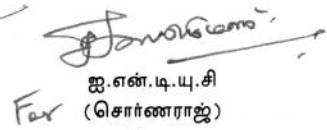 ஐ.என்.டி.யு.சி
For (சொர்ணராஜ்)